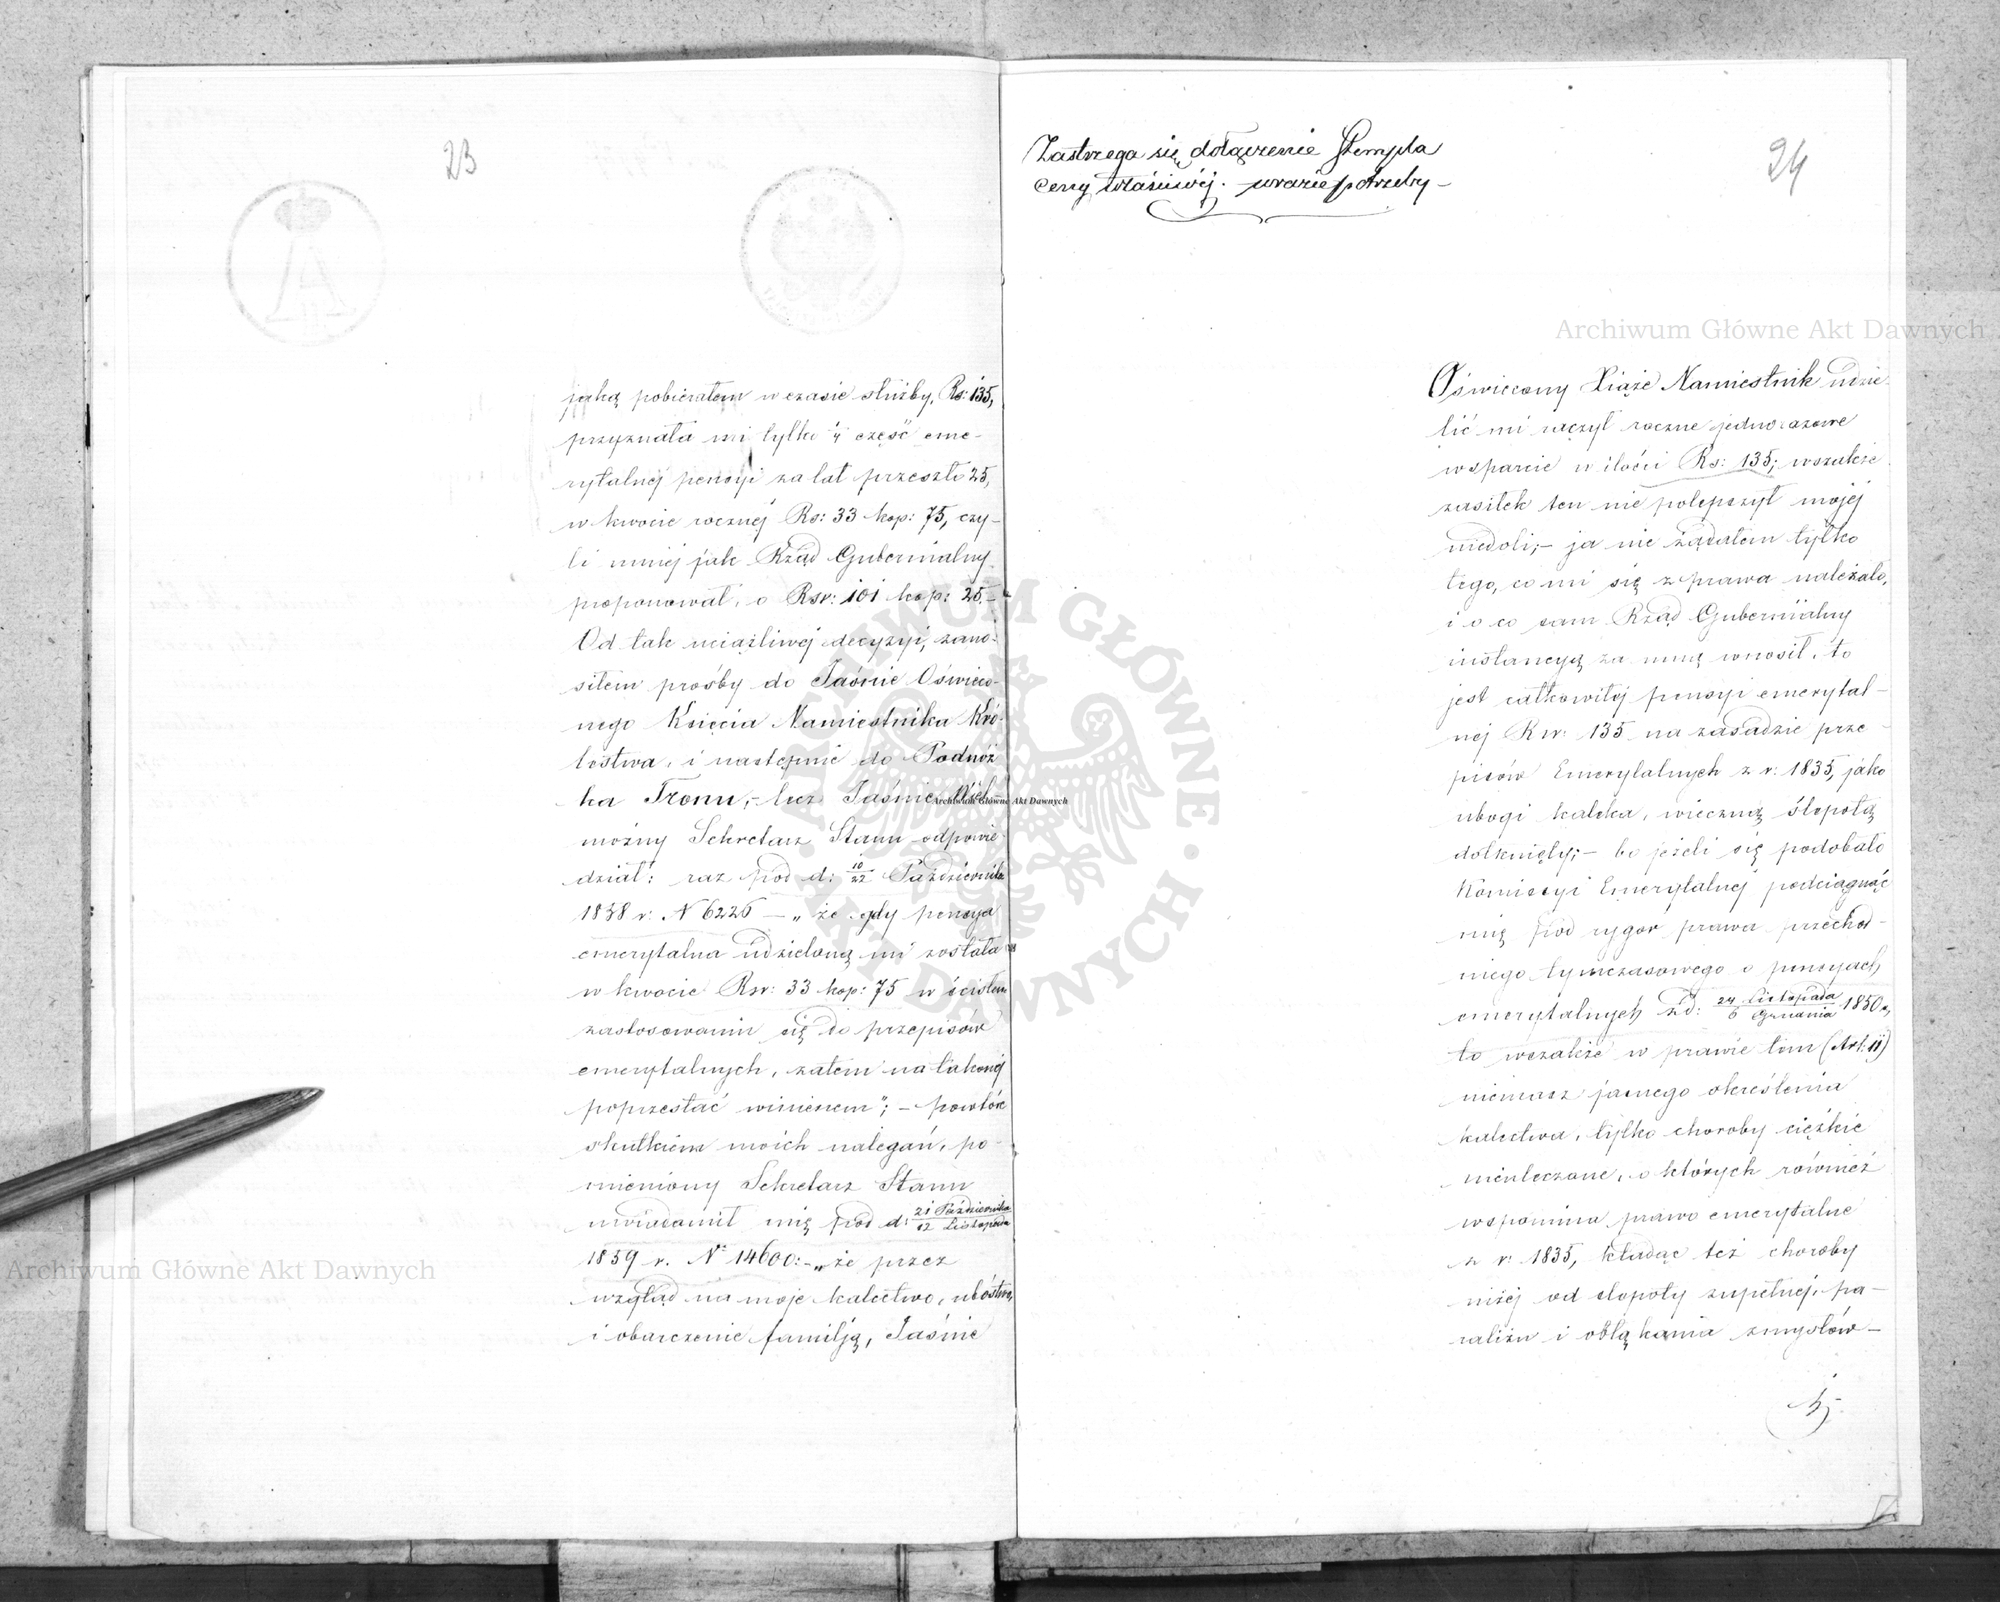 23
jaką pobierałem w czasie służby, Rs: 135,
przyznała mi tylko ¼ część eme-
rytalnej pensyi za lat przeszło 25,
w kwocie rocznej Rs: 33 kop: 75, czy-
li mniej jak Rząd Gubernialny
proponował, o Rsr: 101 kop: 25.-
Od tak uciążliwej decyzyi, zano-
siłem prośby do Jaśnie Oświeco-
nego Księcia Namiestnika Kró-
lestwa, i następnie do Podnóż
ka Tronu,- lecz Jaśnie Wiel-
możny Sekretarz Stanu odpowie-
dział: raz pod d: 10/22 Października
1858 r: N 6226 - „że gdy pensya
emerytalna udzieloną mi została
w kwocie Rsr: 33 kop: 75 w ścisłem
zastosowaniu się do przepisów
emerytalnych, zatem na takowej
poprzestać winienem"; - powtóre
skutkiem moich nalegań, po-
mieniony Sekretarz Stanu
uwiadomił mię pod d: 21 Października/12 Listopada
1859 r. N: 14600:- „że przez
wzgląd na moje kalectwo, ubóstwo,
i obarczenie familją, Jaśnie
Zastrzega się dołączenie Stempla
ceny właściwéj. w razie potrzeby -
24
Oświecony Xiąże Namiestnik udzie-
lić mi raczył roczne jednorazowe
wsparcie w ilości Rs: 135; wszakże
zasiłek ten nie polepszył mojej
niedoli;- ja nie żądałem tylko
tego, co mi się z prawa należało,
i o co sam Rząd Gubernialny
instancyą za mną wnosił, to
jest całkowitej pensyi emerytal-
nej Rsr: 135 na zasadzie prze-
pisów Emerytalnych z r: 1835, jako
ubogi kaleka, wieczną ślepotą
dotknięty;- bo jeżeli się podobało
Komissyi Emerytalnej podciągnąć
mię pod rygor prawa przechod-
niego tymczasowego o pensyach
emerytalnych z d: 24 Listopada/6 Grudnia 1850 r,
to wszakże w prawie tem (Art: 11)
niemasz jasnego określenia
kalectwa, tylko choroby ciężkie
nieuleczone, o których również
wspomina prawo emerytalne
z r: 1835, kładąc też choroby
niżej od ślepoty zupełnej, pa-
raliżu i obłąkania zmysłów-
Archiwum Główne Akt Dawnych
Archiwum Główne Akt Dawnych
Archiwum Główne Akt Dawnych
ARCHIWUM GŁÓWNE · AKT DAWNYCH ·